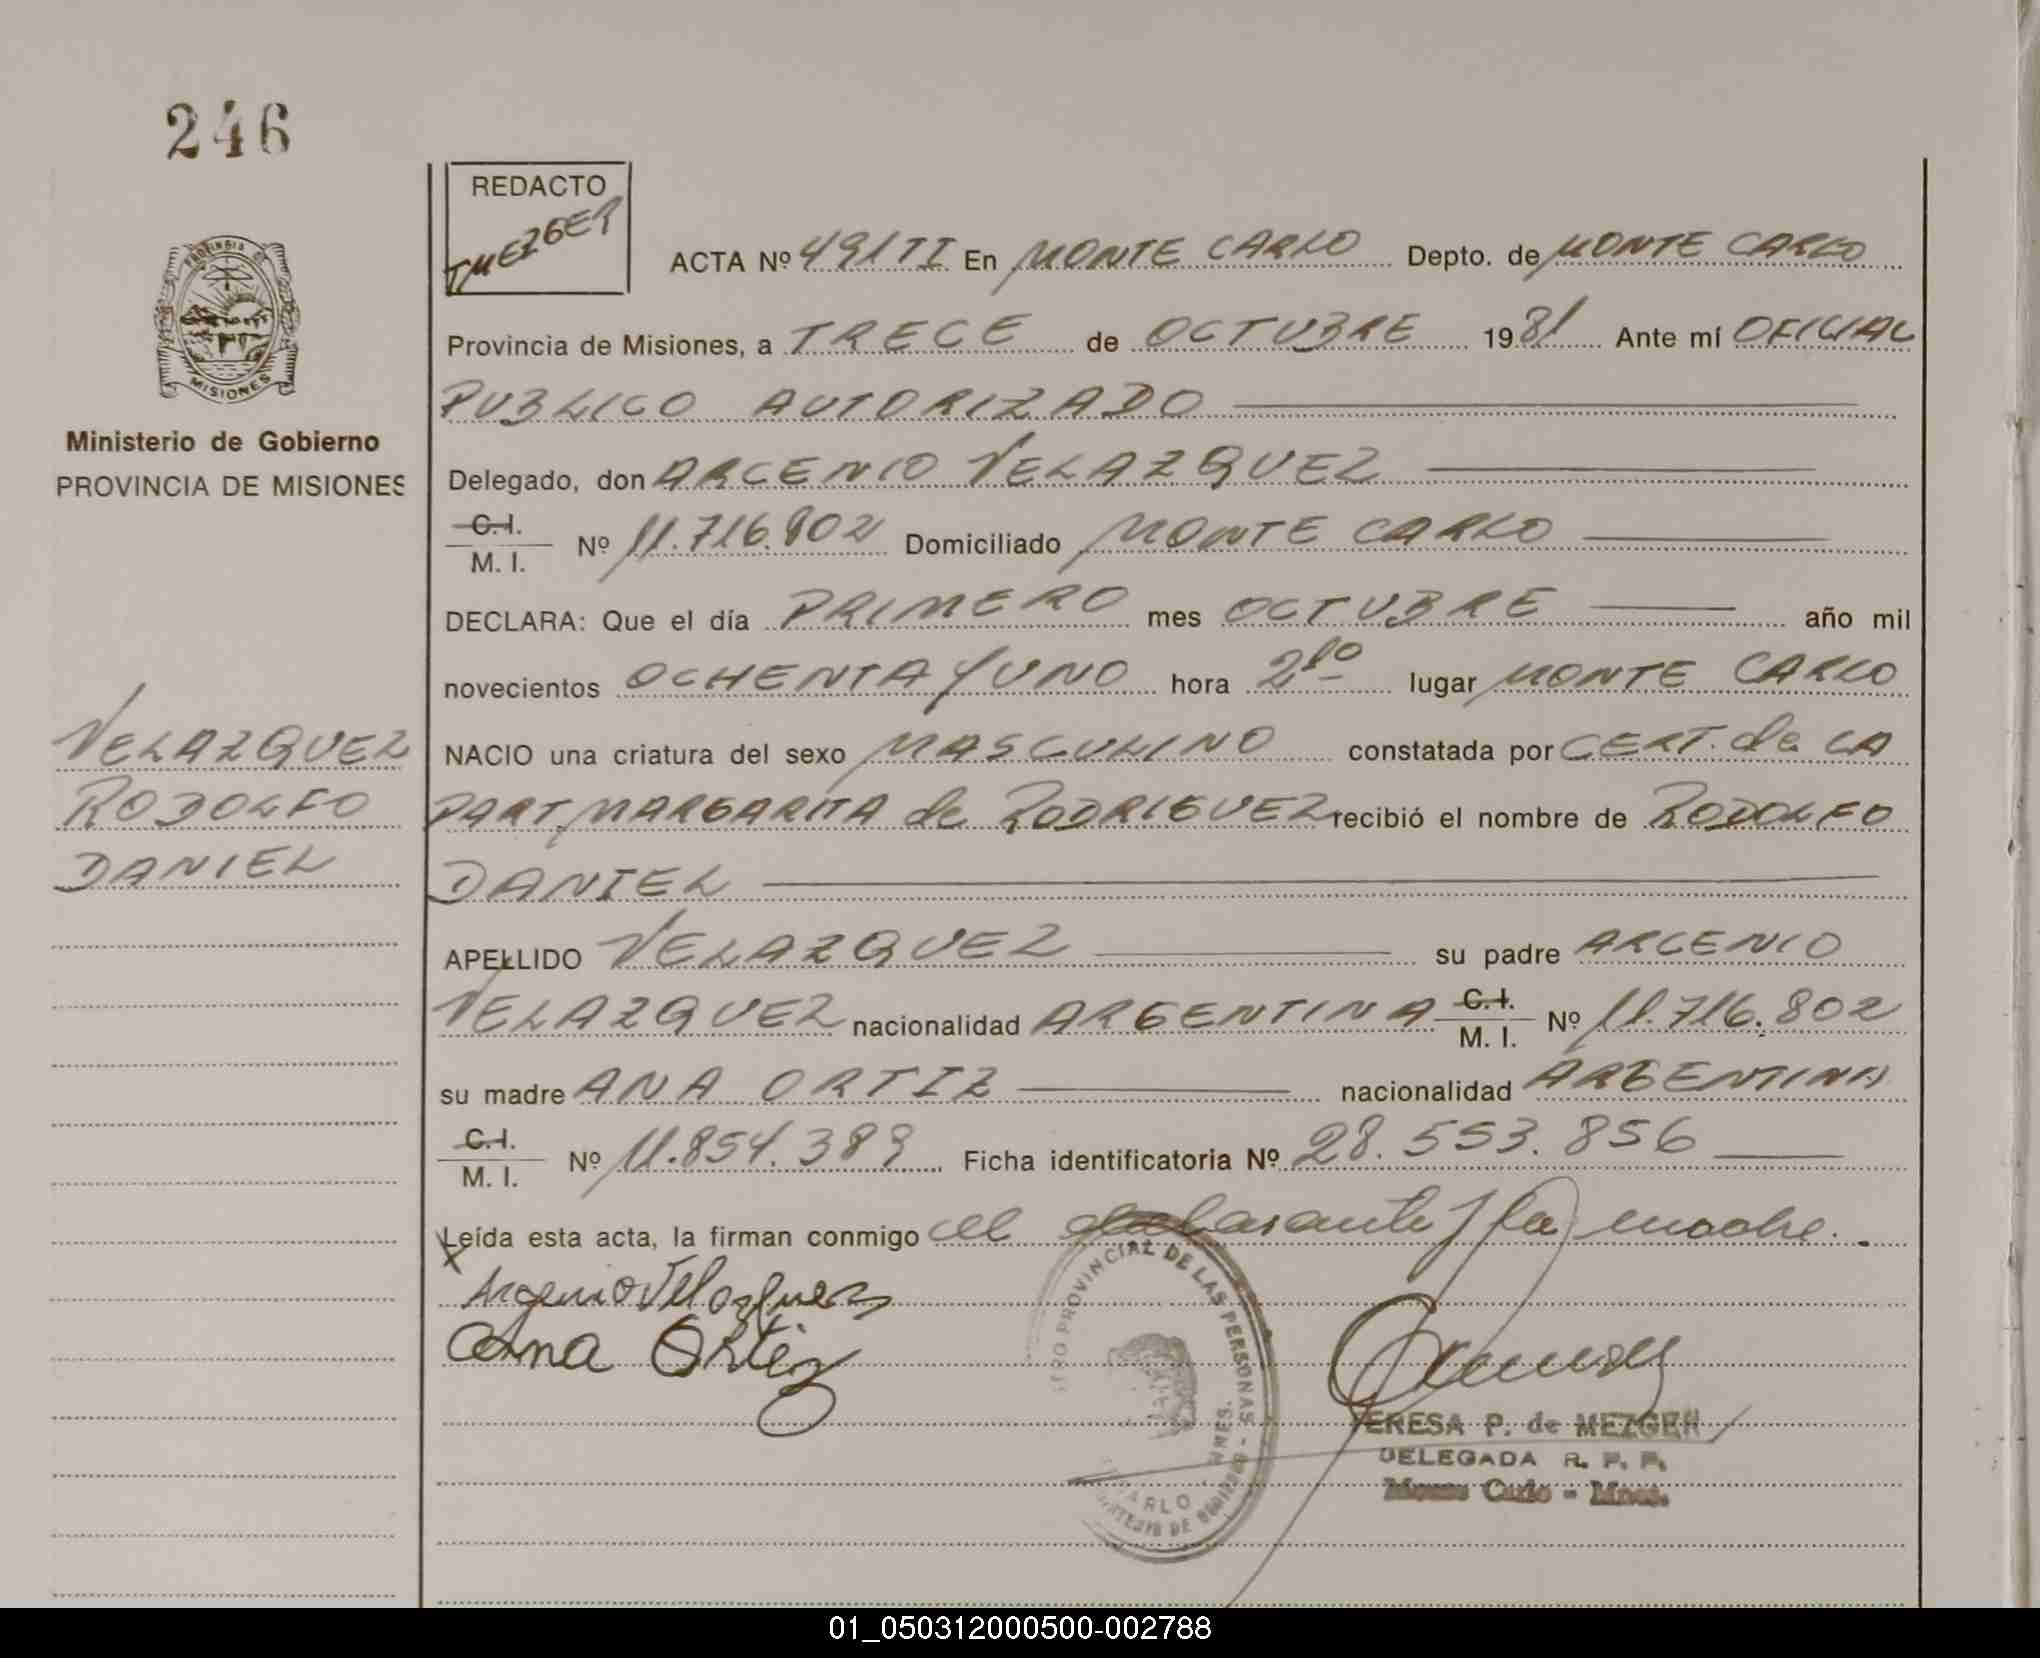 246
REDACTO
TMEZGER
ACTA Nº 491TI En MONTE CARLO Depto. de MONTE CARLO
Provincia de Misiones, a TRECE de OCTUBRE 1981 Ante mí OFICIAL
PUBLICO AUTORIZADO
Ministerio de Gobierno
PROVINCIA DE MISIONES
MISIONES
Delegado, don ARCENIO VELAZQUEZ
C.I.
M. I. Nº 11.716.802 Domiciliado MONTE CARLO
DECLARA: Que el día PRIMERO mes OCTUBRE año mil
novecientos OCHENTA Y UNO hora lugar MONTE CARLO
VELAZQUEZ
RODOLFO
DANIEL
NACIO una criatura del sexo MASCULINO constatada por CERT. de LA
PART. MARGARITA de RODRIGUEZ recibió el nombre de RODOLFO
DANIEL
APELLIDO VELAZQUEZ su padre ARCENIO
VELAZQUEZ nacionalidad ARGENTINA C.I.
M. I. Nº 11.716.802
su madre ANA ORTIZ nacionalidad ARGENTINA
C.I.
M. I. Nº 11.854.389 Ficha identificatoria Nº 28.553.856
Leída esta acta, la firman conmigo el y la madre.
Velazquez
Ana Ortiz
PROVINCIAL DE LAS PERSONAS
TERESA P. de MEZGER
DELEGADA R. P. P.
Monte Carlo - Mnes.
01_050312000500-002788